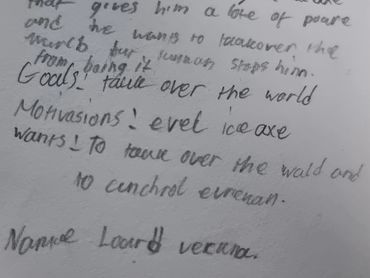 that gives him a lote of poure
and he wants to taukover the
wurld but humman stops him.
from being it
Goals! tauk over the world
Motivasions! evel iceaxe
wants! To tauk over the wald and
to cunchrol evrewan.
Name Loard veruna.